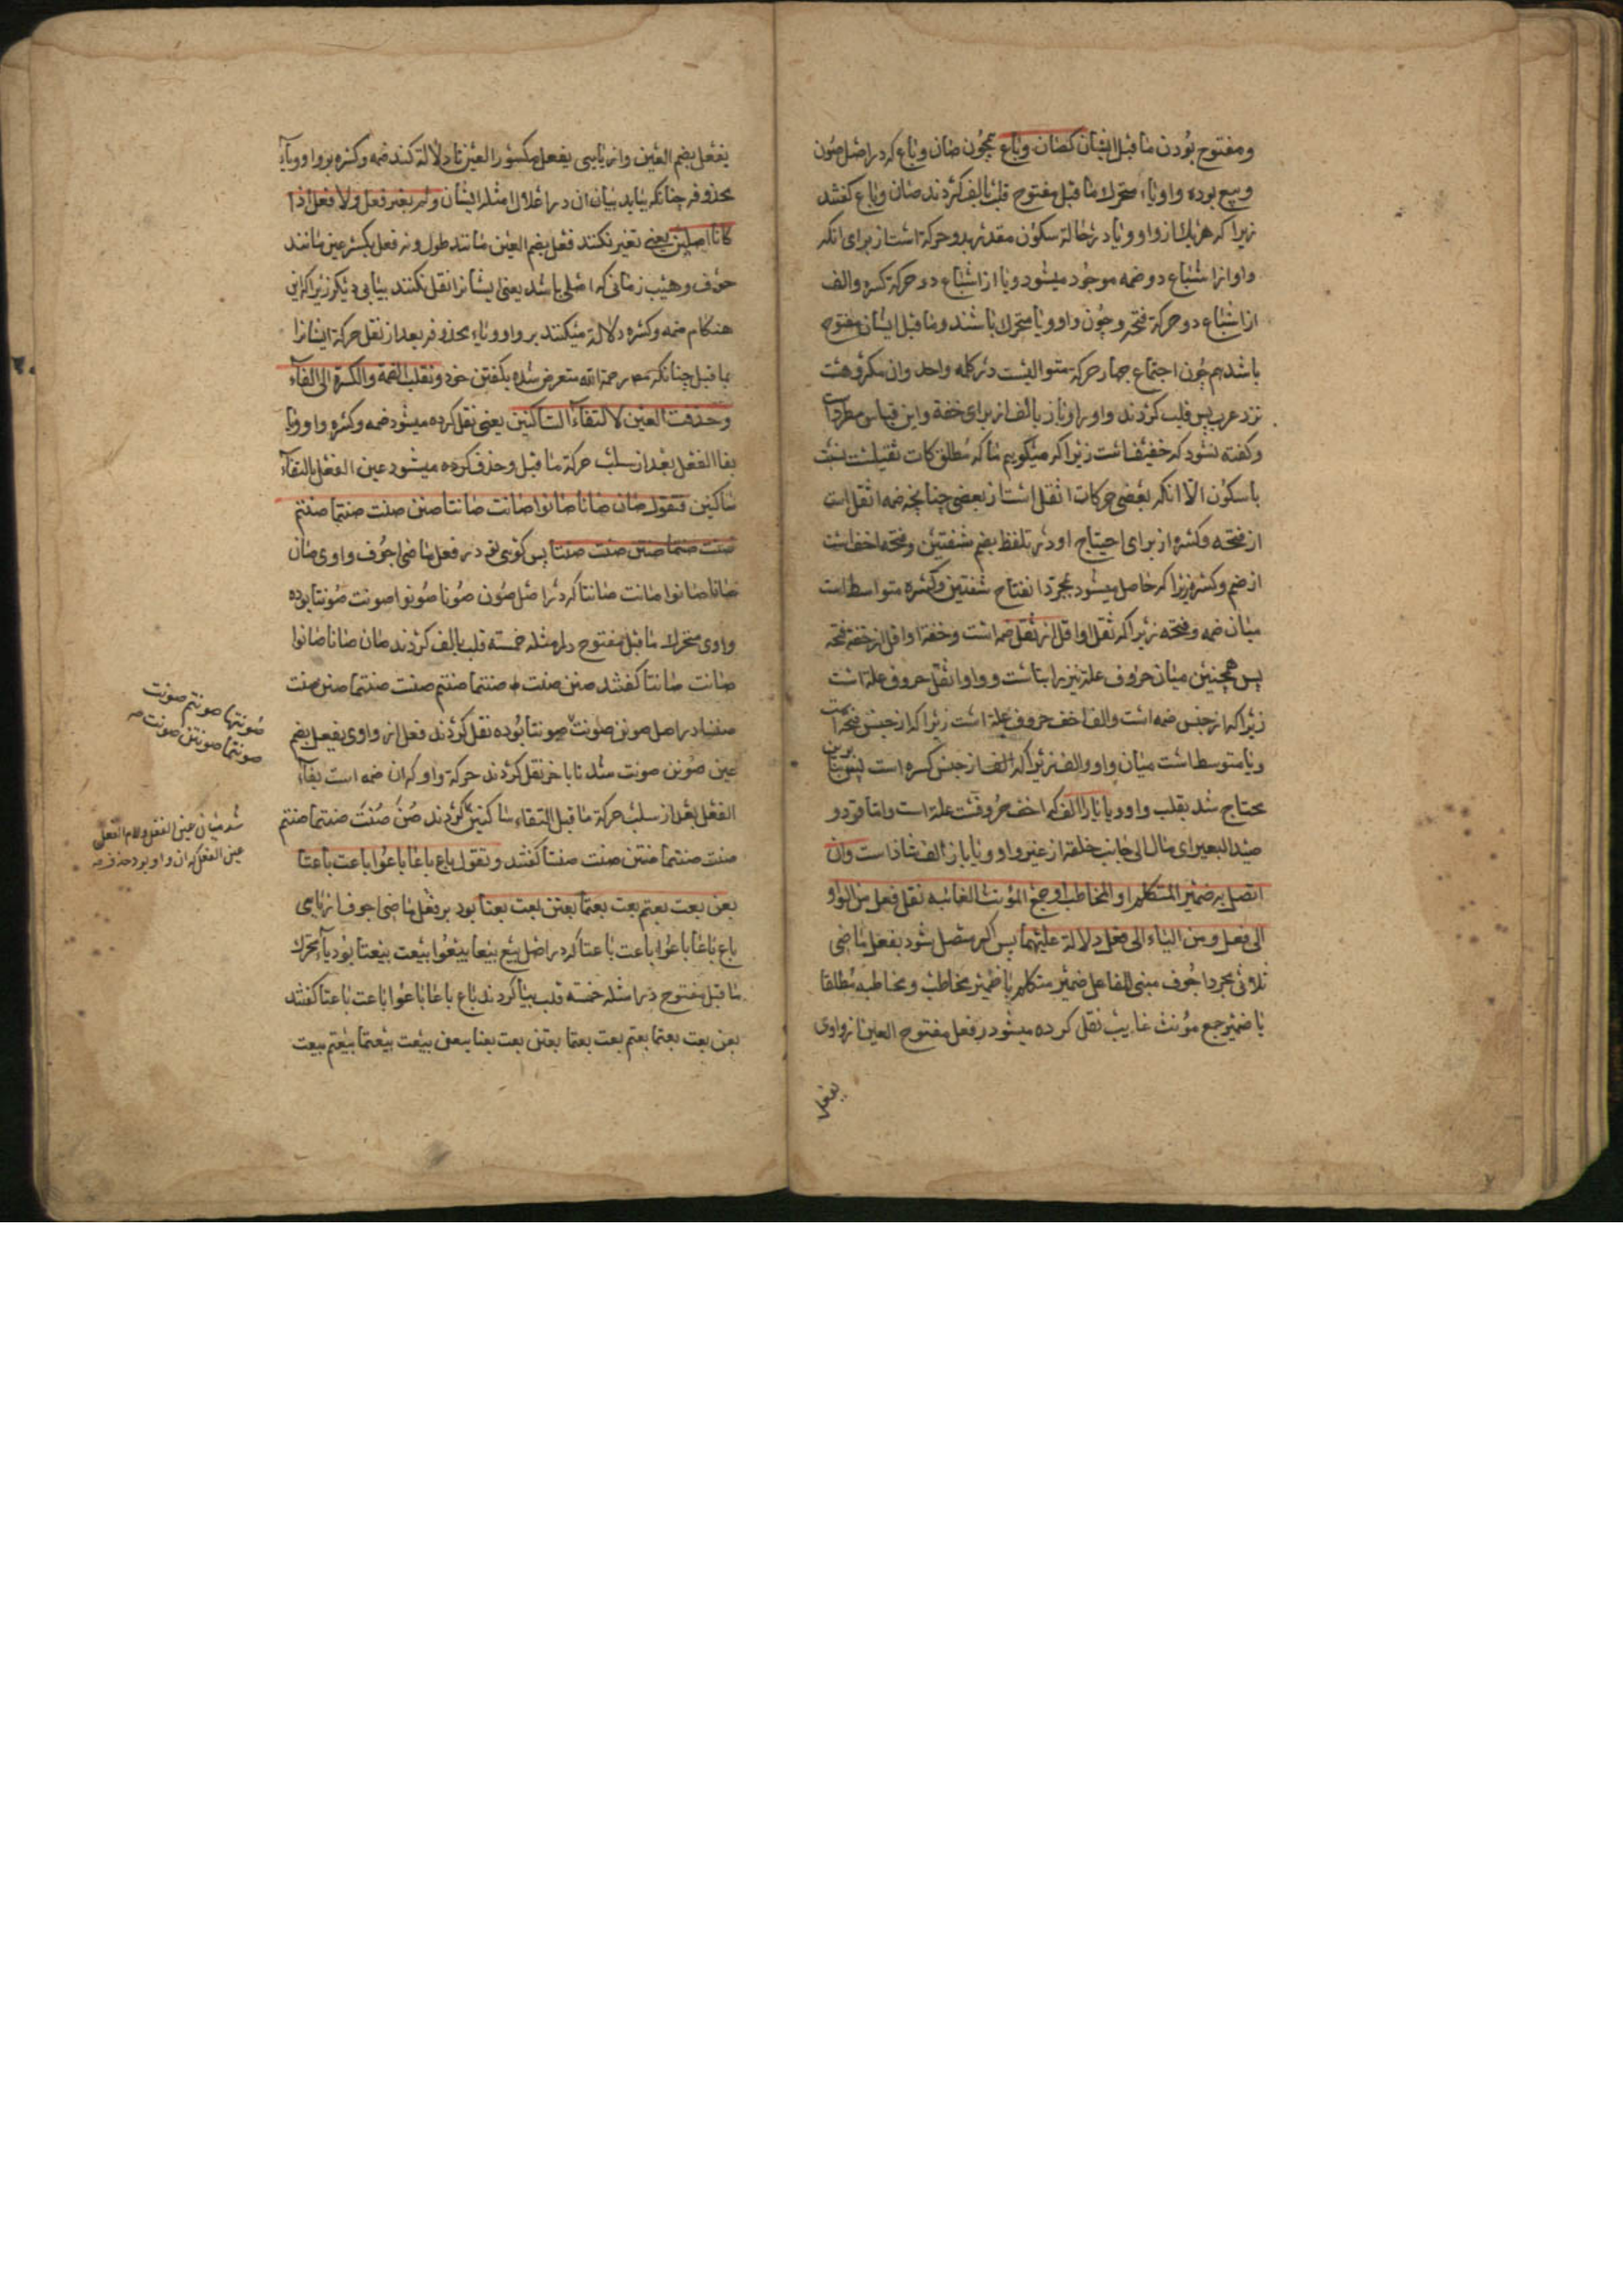 ومفتوح بودن ماقبل ایشان کصان وباع همچون صان وباع که در اصل صون
وبیع بوده واو ویاء متحرک ماقبل مفتوح قلب بالف کردند صان وباع کفتند
زیرا که هر یک از واو ویا در حالة سکون مقدر بدو حرکة است از برای انکه
واو از اشباع دو ضمه موجود میشود ویا از اشباع دو حرکة کسره والف
از اشباع دو حرکة فتحه وچون واو ویا متحرک باشند وماقبل ایشان مفتوح
باشد هم چون اجتماع چهار حرکة متوالیست در کلمه واحد وان مکروهست
نزد عرب پس قلب کردند واو را ویا را بالف از برای خفة واین قیاس مطرد است
وکفته نشود که خفیفست زیرا که میکویم ما که مطلق حرکات ثقیلست نسبت
باسکون الا انکه بعضی حرکات اثقل است از بعضی چنانچه ضمه اثقل است
از فتحه وکسره از برای احتیاج او در تلفظ بضم شفتین وفتحه اخف است
از ضم وکسر زیرا که حاصل میشود بمجرد انفتاح شفتین وکسره متواسط است
میان ضمه وفتحه زیرا که ثقل او اقل از ثقل ضمه است وخفة او اقل از خفة فتحه
پس همچنین میان حروف علة نیز براینست وواو اثقل حروف علة است
زیرا که از جنس ضمه است والف اخف حروف علة است زیرا که از جنس فتحه است
ویا متوسط است میان واو والف زیرا که از جنس کسره است پس بنابرین
محتاج شد بقلب واو ویا بالف که اخف حروفست علة است واما قود و
صید البعیر ای مال الی جانب خلقه از غیر واو ویا باز الف شاذ است وان
اتصل به ضمیر المتکلم او المخاطب او جمع المؤنث الغائبه نقل فعل من الواو
الی فعل ومن الیاء الی فعل دلالة علیهما پس اکر متصل شود بفعل ماضی
ثلاثی مجرد اجوف مبنی للفاعل ضمیر متکلم یا ضمیر مخاطب ومخاطبه مطلقا
یا ضمیر جمع مؤنث غایب نقل کرده میشود فعل مفتوح العین از واوی
یفعل
یفعل بضم العین واز یایی یفعل مکسور العین تا دلالة کند ضمه وکسره بر واو ویاء
محذوفه چنانکه بیاید بیان ان در اعلال امثله ایشان ولم یغیر فعل ولا فعل اذا
کانا اصلیین یعنی تغیر نکنند فعل بضم العین مانند طول ونه فعل بکسر عین مانند
خوف وهیب زمانی که اصلی باشد یعنی ایشانرا نقل نکنند ببابی دیکر زیرا که این
هنکام ضمه وکسره دلالة میکنند بر واو ویاء محذوفه بعد از نقل حرکة ایشانرا
بماقبل چنانکه مصـ رحمة الله متعرض شده بکفتن خود ونقلت الضمة والکسرة الی الفاء
وحذفت العین لالتقاء الساکنین یعنی نقل کرده میشود ضمه وکسره واو ویا
بفاء الفعل بعد از سلب حرکة ماقبل وحذف کرده میشود عین الفعل بالتقاء
ساکنین فتقول صان صانا صانوا صانت صانتا صنن صنت صنتما صنتم
صنت صنتما صنتن صنت صننا پس کویی تو در فعل ماضی اجوف واوی صان
صانا صانوا صانت صانتا که در اصل صون صونا صونوا صونت صونتا بوده
واوی متحرک ماقبل مفتوح در امثله خمسه قلب بالف کردند صان صانا صانوا
صانت صانتا کفتند صنن صنت صنتما صنتم صنت صنتما صنتن صنت
صننا در اصل صونن صونت صوننا بوده نقل کردند فعل از واوی بفعل بضم
عین صونن صونت شد تا باخر نقل کردند حرکة واو که ان ضمه است بفاء
الفعل بعد از سلب حرکة ماقبل التقاء ساکنین کردند صن صنت صنتما صنتم
صنت صنتما صنتن صنت صننا کفتند وتقول باع باعا باعوا باعت باعتا
بعن بعت بعتم بعت بعتما بعتن بعت بعنا بود بر فعل ماضی اجوف از یایی
باع باعا باعوا باعت باعتا که در اصل بیع بیعا بیعوا بیعت بیعتا بود یاء متحرک
ماقبل مفتوح در امثله خمسه قلب بیا کردند باع باعا باعوا باعت باعتا کفتند
بعن بعت بعتما بعتم بعت بعتما بعتن بعت بعنا بیعن بیعت بیعتما بیعتم بیعت
صونتما صونتم صونت
صونتما صونتن صونت صـ
شد میان عین الفعل ولام الفعل
عین الفعل که ان واو بود حذف صـ